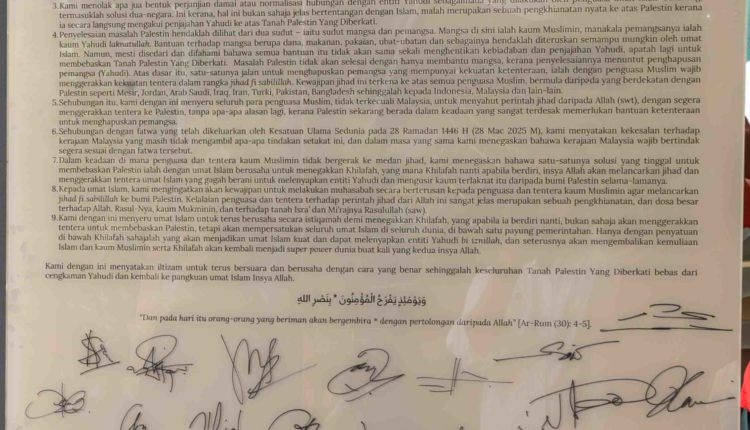 3.Kami menolak apa jua bentuk perjanjian damai atau normalisasi hubungan dengan entiti Yahudi
termasuklah solusi dua-negara. Ini kerana, hal ini bukan sahaja jelas bertentangan dengan Islam, malah merupakan sebuah pengkhianatan nyata ke atas Palestin kerana
ia secara langsung mengakui penjajahan Yahudi ke atas Tanah Palestin Yang Diberkati.
4.Penyelesaian masalah Palestin hendaklah dilihat dari dua sudut – iaitu sudut mangsa dan pemangsa. Mangsa di sini ialah kaum Muslimin, manakala pemangsanya ialah
kaum Yahudi laknatullah. Bantuan terhadap mangsa berupa dana, makanan, pakaian, ubat-ubatan dan sebagainya hendaklah diteruskan semampu mungkin oleh umat
Islam. Namun, mesti disedari dan difahami bahawa semua bantuan itu tidak akan sama sekali menghentikan kebiadaban dan penjajahan Yahudi, apatah lagi untuk
membebaskan Tanah Palestin Yang Diberkati. Masalah Palestin tidak akan selesai dengan hanya membantu mangsa, kerana penyelesaiannya menuntut penghapusan
pemangsa (Yahudi). Atas dasar itu, satu-satunya jalan untuk menghapuskan pemangsa yang mempunyai kekuatan ketenteraan, ialah dengan penguasa Muslim wajib
menggerakkan kekuatan tentera dalam rangka jihad fi sabilillah. Kewajipan jihad ini terkena ke atas semua penguasa Muslim, bermula daripada yang berdekatan dengan
Palestin seperti Mesir, Jordan, Arab Saudi, Iraq, Iran, Turki, Pakistan, Bangladesh sehinggalah kepada Indonesia, Malaysia dan lain-lain.
5.Sehubungan itu, kami dengan ini menyeru seluruh para penguasa Muslim, tidak terkecuali Malaysia, untuk menyahut perintah jihad daripada Allah (swt), dengan segera
menggerakkan tentera ke Palestin, tanpa apa-apa alasan lagi, kerana Palestin sekarang berada dalam keadaan yang sangat terdesak memerlukan bantuan ketenteraan
untuk menghapuskan pemangsa.
6.Sehubungan dengan fatwa yang telah dikeluarkan oleh Kesatuan Ulama Sedunia pada 28 Ramadan 1446 H (28 Mac 2025 M), kami menyatakan kekesalan terhadap
kerajaan Malaysia yang masih tidak mengambil apa-apa tindakan setakat ini, dan dalam masa yang sama kami menegaskan bahawa kerajaan Malaysia wajib bertindak
segera sesuai dengan fatwa tersebut.
7.Dalam keadaan di mana penguasa dan tentera kaum Muslimin tidak bergerak ke medan jihad, kami menegaskan bahawa satu-satunya solusi yang tinggal untuk
membebaskan Palestin ialah dengan umat Islam berusaha untuk menegakkan Khilafah, yang mana Khilafah nanti apabila berdiri, insya Allah akan melancarkan jihad dan
menggerakkan tentera umat Islam yang gagah berani untuk melenyapkan entiti Yahudi dan mengusir kaum terlaknat itu daripada bumi Palestin selama-lamanya.
8.Kepada umat Islam, kami mengingatkan akan kewajipan untuk melakukan muhasabah secara berterusan kepada penguasa dan tentera kaum Muslimin agar melancarkan
jihad fi sabilillah ke bumi Palestin. Kelalaian penguasa dan tentera terhadap perintah jihad dari Allah ini sangat jelas merupakan sebuah pengkhianatan, dan dosa besar
terhadap Allah, Rasul-Nya, kaum Mukminin, dan terhadap tanah Isra' dan Mi'rajnya Rasulullah (saw).
9.Kami dengan ini menyeru umat Islam untuk terus berusaha secara istiqamah demi menegakkan Khilafah, yang apabila ia berdiri nanti, bukan sahaja akan menggerakkan
tentera untuk membebaskan Palestin, tetapi akan mempersatukan seluruh umat Islam di seluruh dunia, di bawah satu payung pemerintahan. Hanya dengan penyatuan
di bawah Khilafah sahajalah yang akan menjadikan umat Islam kuat dan dapat melenyapkan entiti Yahudi bi iznillah, dan seterusnya akan mengembalikan kemuliaan
Islam dan kaum Muslimin serta Khilafah akan kembali menjadi super power dunia buat kali yang kedua insya Allah.
Kami dengan ini menyatakan iltizam untuk terus bersuara dan berusaha dengan cara yang benar sehinggalah keseluruhan Tanah Palestin Yang Diberkati bebas dari
cengkaman Yahudi dan kembali ke pangkuan umat Islam Insya Allah.
وَيَوْمَئِذٍ يَفْرَحُ الْمُؤْمِنُونَ * بِنَصْرِ اللهِ
"Dan pada hari itu orang-orang yang beriman akan bergembira * dengan pertolongan daripada Allah" [Ar-Rum (30): 4-5].